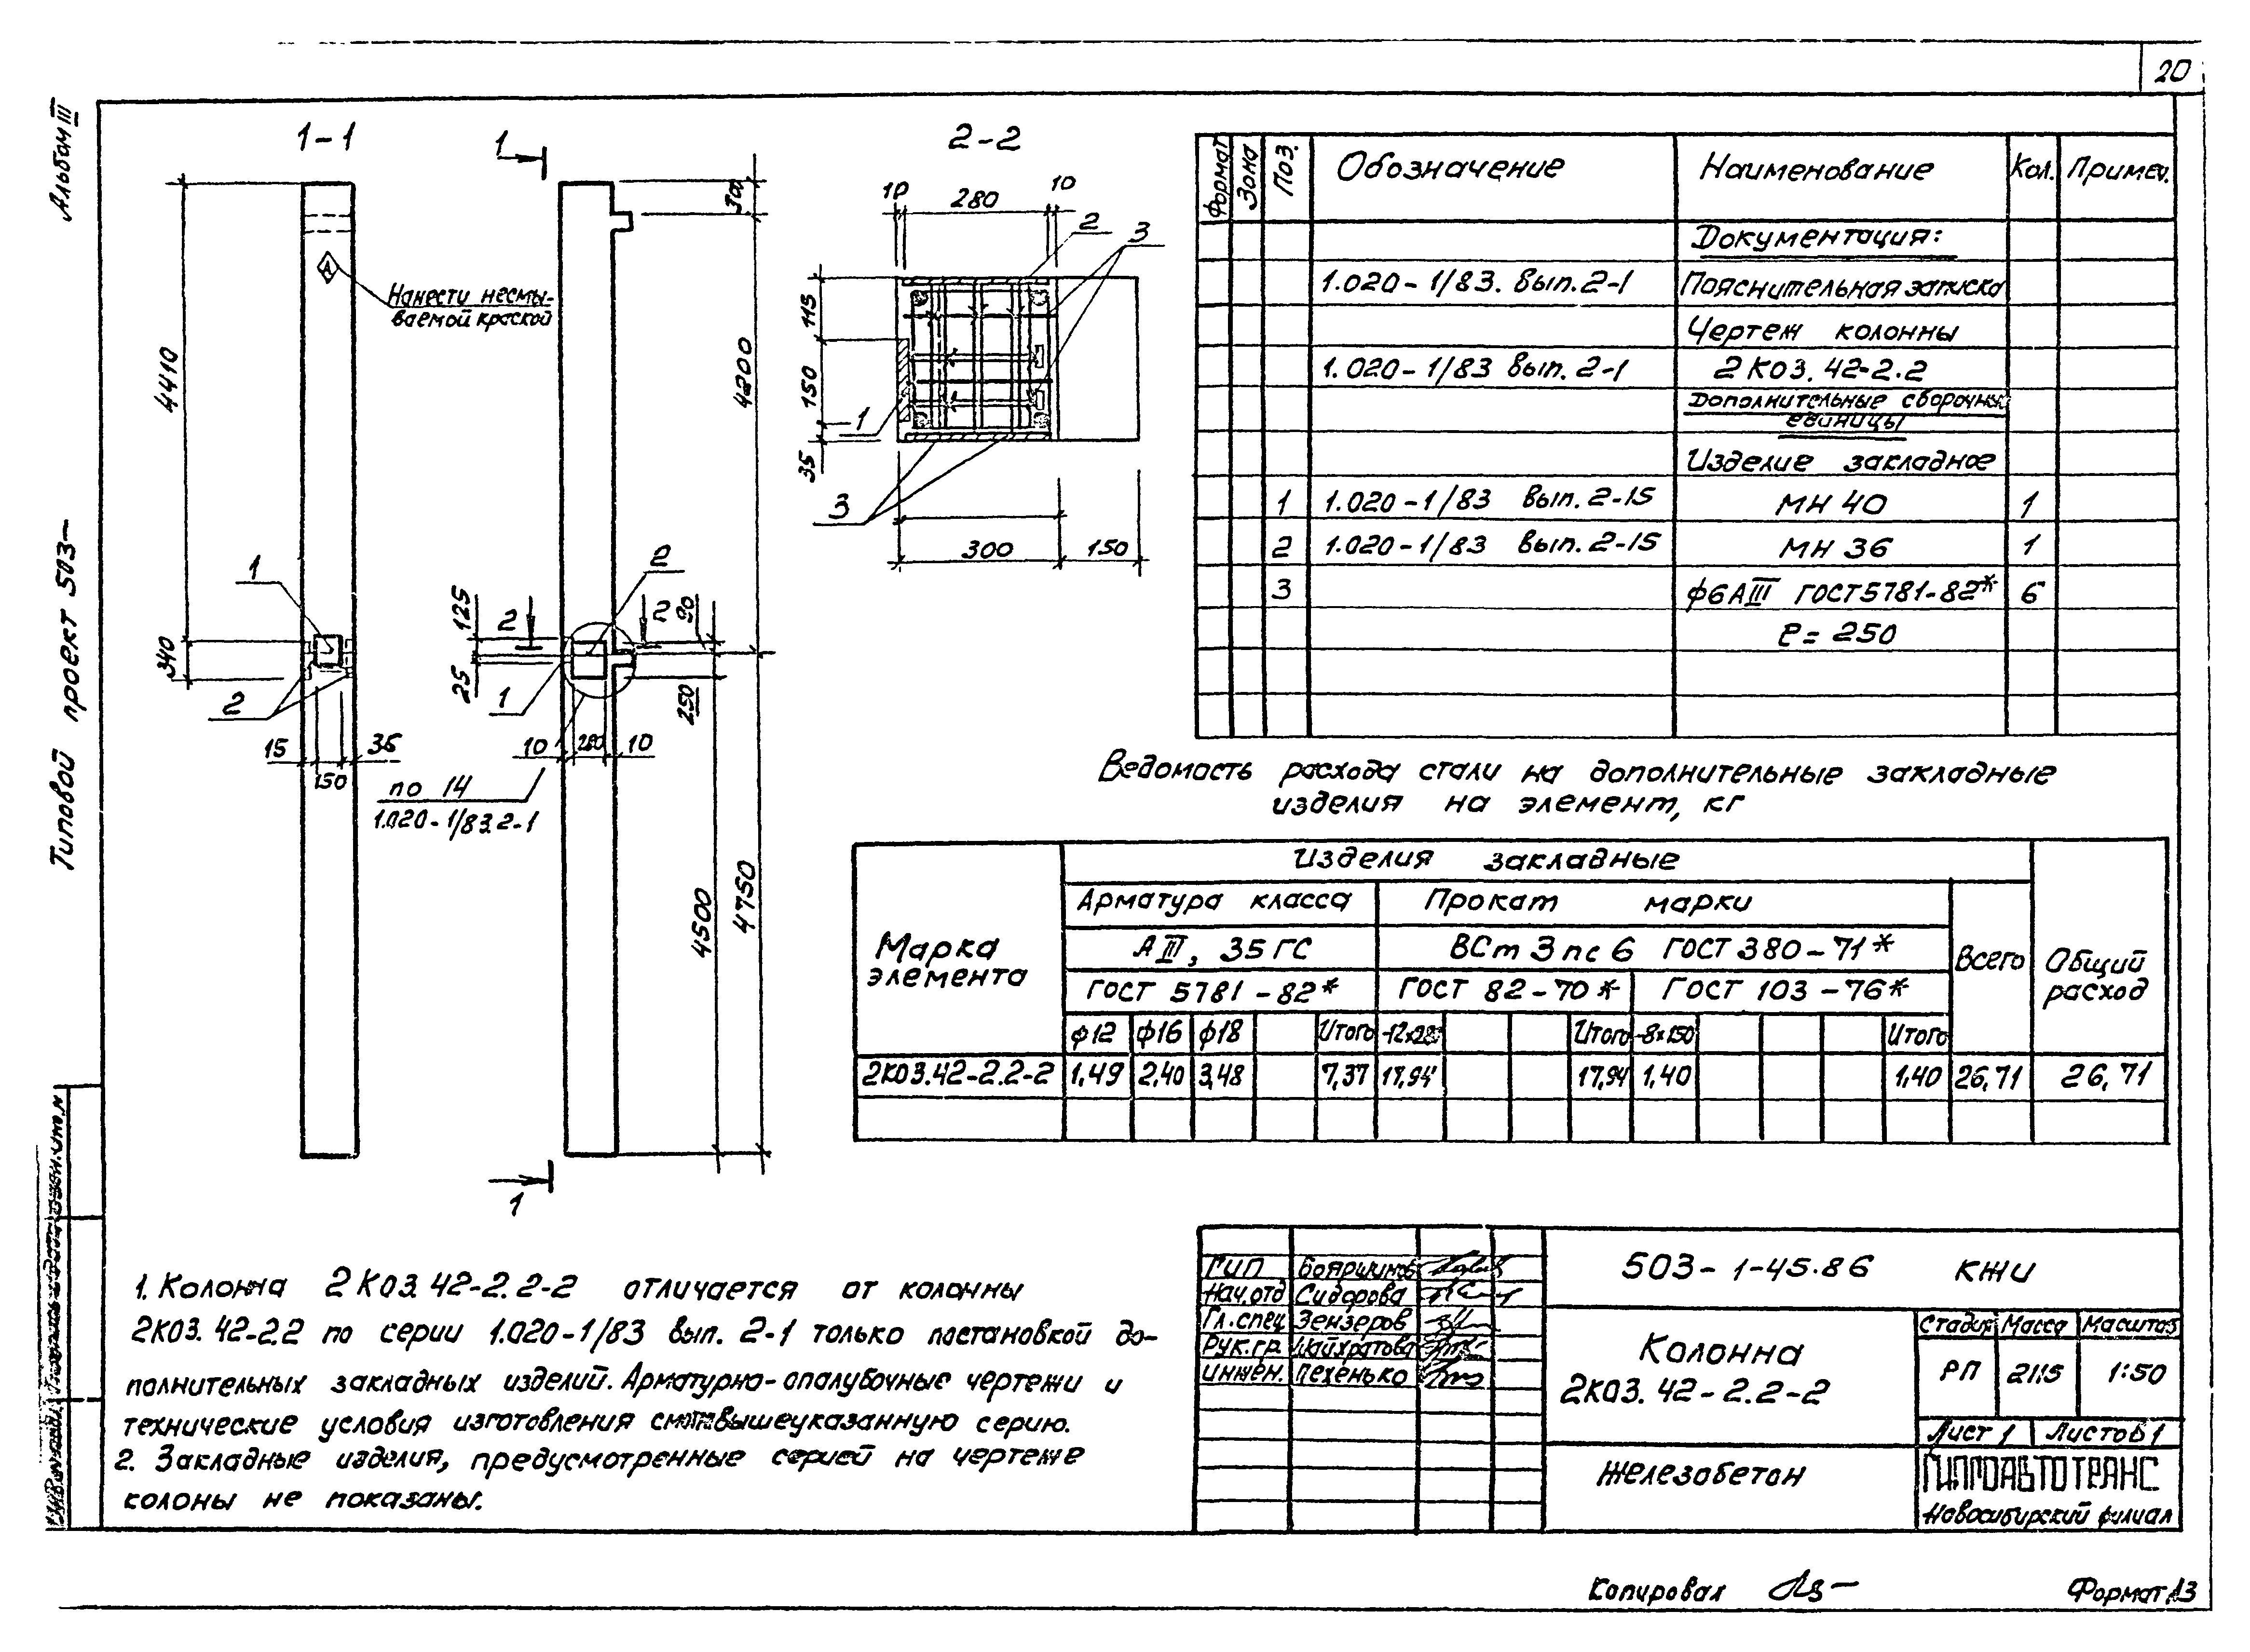 20
Альбом III
Типовой проект 503-
1-1
1
2-2
Нанести несмы-
ваемой краской
А
4410
340
1
2
15
150
35
300
4200
125
25
2
2
2
90
250
1
10
280
10
по 14
1.020-1/83.2-1
4500
4750
1
10
280
10
2
3
115
150
35
1
3
300
150
Формат
Зона
Поз.
Обозначение
Наименование
Кол.
Примеч.
Документация:
1.020-1/83. Вып. 2-1
Пояснительная записка
Чертеж колонны
1.020-1/83 Вып. 2-1
2К03.42-2.2
Дополнительные сборочные
единицы
Изделие закладное
1 1.020-1/83 Вып. 2-15 МН 40 1
2 1.020-1/83 Вып. 2-15 МН 36 1
3 ф6АIII ГОСТ5781-82* 6
ℓ= 250
Ведомость расхода стали на дополнительные закладные
изделия на элемент, кг
Марка
элемента
Изделия закладные
Арматура класса
Прокат марки
АIII, 35ГС
ВСт 3 пс 6 ГОСТ 380-71*
Всего
Общий
расход
ГОСТ 5781-82*
ГОСТ 82-70*
ГОСТ 103-76*
ф12 ф16 ф18 Итого -12х280 Итого -8х150 Итого
2К03.42-2.2-2 1,49 2,40 3,48 7,37 17,94 17,94 1,40 1,40 26,71 26,71
1. Колонна 2К03.42-2.2-2 отличается от колонны
2К03.42-2.2 по серии 1.020-1/83 вып. 2-1 только постановкой до-
полнительных закладных изделий. Арматурно-опалубочные чертежи и
технические условия изготовления смотри вышеуказанную серию.
2. Закладные изделия, предусмотренные серией на чертеже
колоны не показаны.
ГИП Бояршинов
Нач.отд Сидорова
Гл.спец Зензеров
Рук.гр.
Инжен. Пехенько
503-1-45.86 КЖИ
Колонна
2К03.42-2.2-2
Стадия Масса Масштаб
РП 2115 1:50
Лист 1 Листов 1
Железобетон
ГИПРОАВТОТРАНС
Новосибирский филиал
Копировал
Формат А3